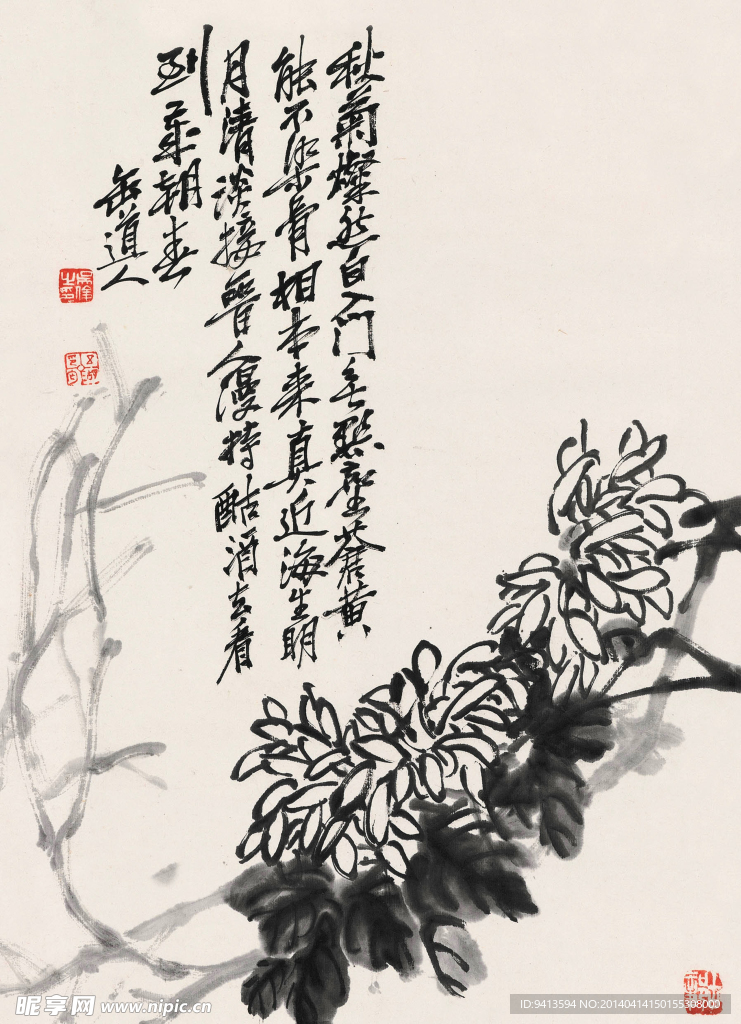 秋菊燦然白入門無點塵蒼黃
能不染骨相本来真近海生明
月清淡接晉人漫持酤酒去看
到歲朝春
缶道人
昵享网 www.nipic.cn
ID:9413594 NO:20140414150155308000